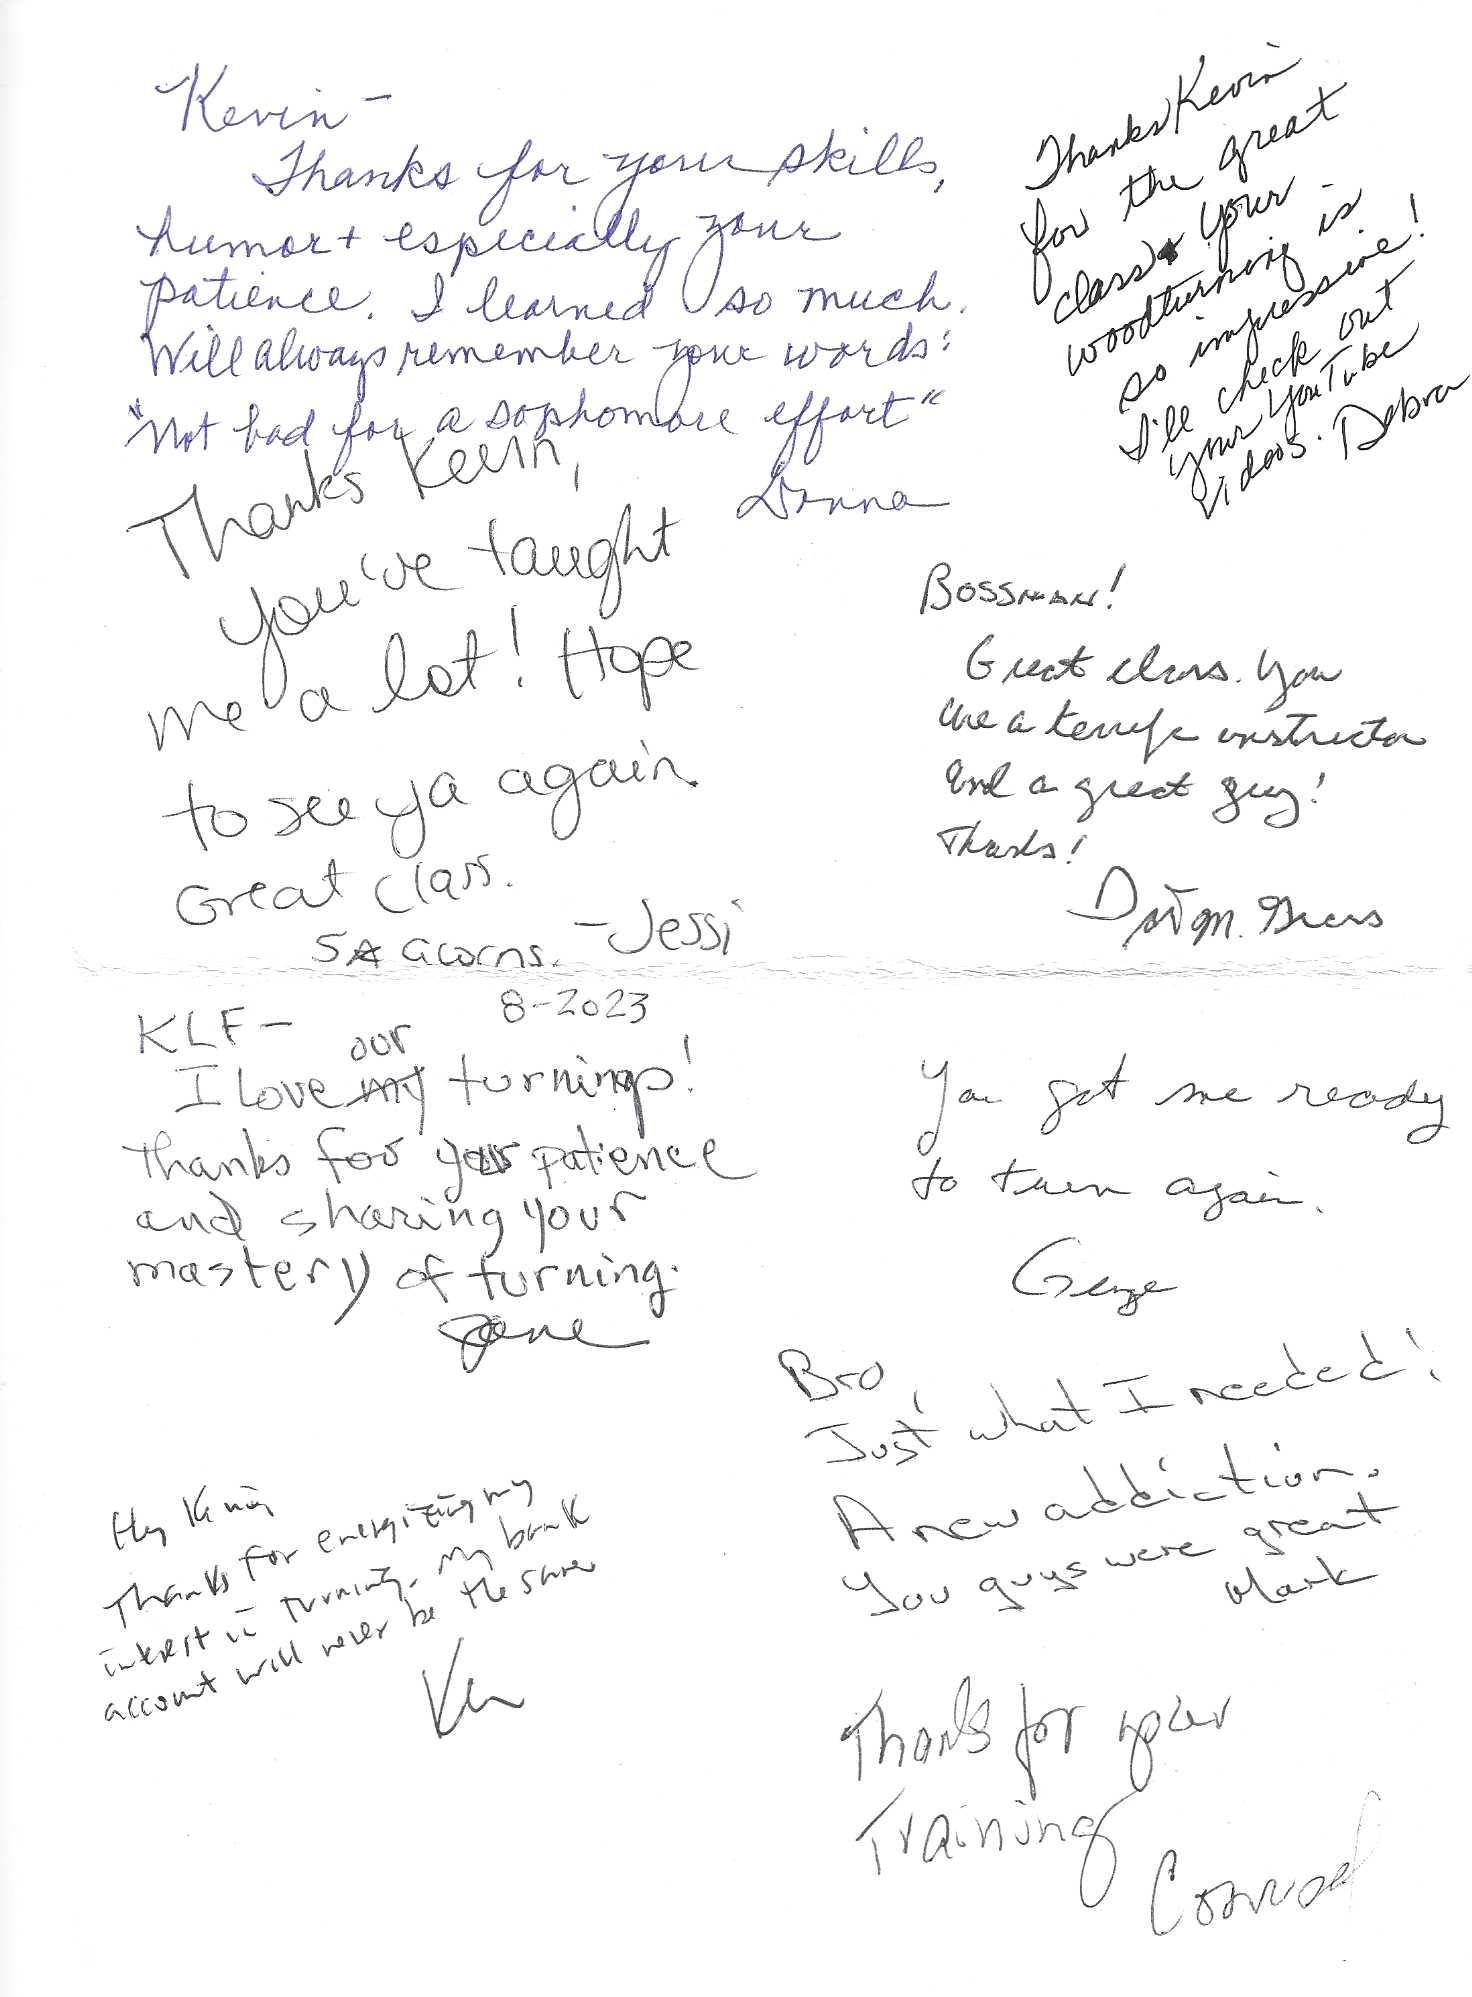 Kevin –
Thanks for your skills,
humor + especially your
patience. I learned so much.
Will always remember your words:
"Not bad for a sophomore effort"
Donna
Thanks Kevin
for the great
class & your
woodturning is
so impressive!
I'll check out
your YouTube
videos. Debra
Thanks Kevin,
you've taught
me a lot! Hope
to see ya again
Great class.
5★ acorns. – Jessi
Bossman!
Great class. You
are a terrific instructor
and a great guy!
Thanks!
8-2023
KLF –
our
I love my turnings!
Thanks for your patience
and sharing your
mastery of turning.
Jane
You got me ready
to turn again.
George
Bro,
Just what I needed!
A new addiction.
You guys were great
Mark
Hey Kevin
Thanks for energizing my
interest in turning. My bank
account will never be the same
Ken
Thanks for your
Training
Conrad